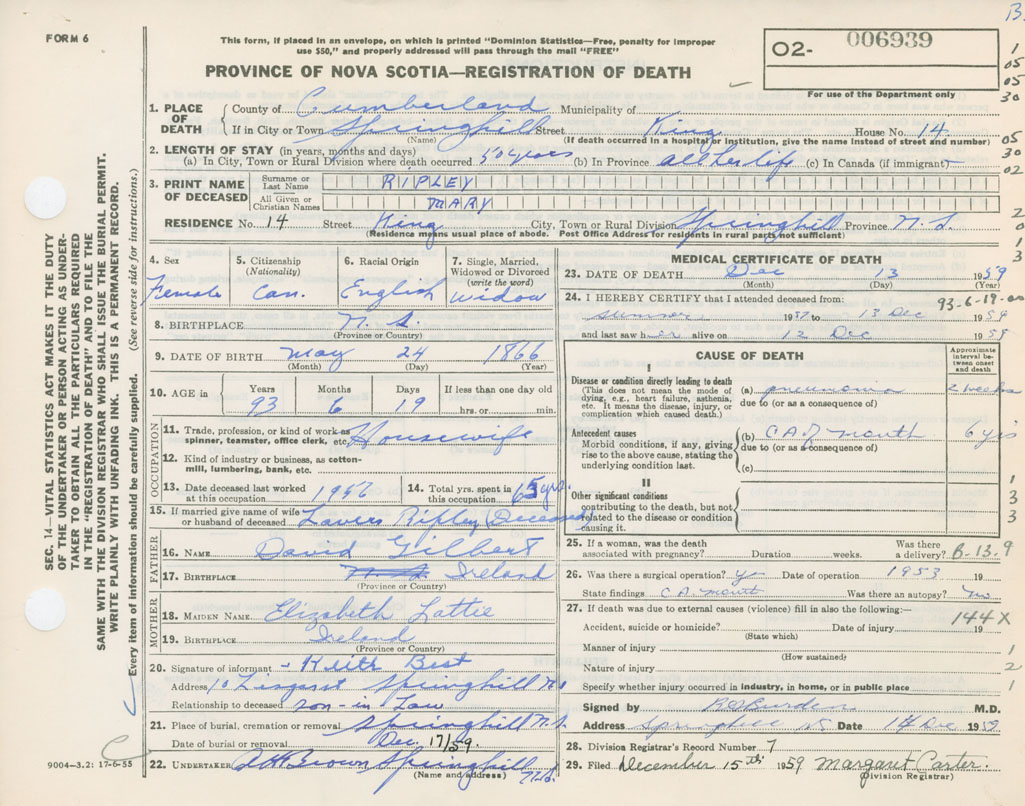 B.
FORM 6
This form, if placed in an envelope, on which is printed "Dominion Statistics—Free, penalty for improper
use $50," and properly addressed will pass through the mail "FREE"
PROVINCE OF NOVA SCOTIA—REGISTRATION OF DEATH
O2- 006939
For use of the Department only
1
05
05
30
05
30
02
2
0
1
3
1. PLACE OF DEATH
County of Cumberland Municipality of
If in City or Town Springhill Street King House No. 14
(Name) (If death occurred in a hospital or institution, give the name instead of street and number)
2. LENGTH OF STAY (in years, months and days)
(a) In City, Town or Rural Division where death occurred 50 years (b) In Province all her life (c) In Canada (if immigrant) —
3. PRINT NAME OF DECEASED
Surname or Last Name RIPLEY
All Given or Christian Names MARY
RESIDENCE No. 14 Street King City, Town or Rural Division Springhill Province N.S.
(Residence means usual place of abode. Post Office Address for residents in rural parts not sufficient)
4. Sex
Female
5. Citizenship
(Nationality)
Can.
6. Racial Origin
English
7. Single, Married,
Widowed or Divorced
(write the word)
widow
8. BIRTHPLACE N.S.
(Province or Country)
9. DATE OF BIRTH May 24 1866
(Month) (Day) (Year)
10. AGE in
Years Months Days If less than one day old
93 6 19 hrs. or min.
OCCUPATION
11. Trade, profession, or kind of work as
spinner, teamster, office clerk, etc. Housewife
12. Kind of industry or business, as cotton-
mill, lumbering, bank, etc.
13. Date deceased last worked
at this occupation 1956
14. Total yrs. spent in
this occupation 65 yrs.
15. If married give name of wife
or husband of deceased Lavers Ripley (Deceased)
FATHER
16. NAME David Gilbert
17. BIRTHPLACE N.S. Ireland
(Province or Country)
MOTHER
18. MAIDEN NAME Elizabeth Lattie
19. BIRTHPLACE Ireland
(Province or Country)
20. Signature of informant - Keith Best
Address 10 Springhill N.S.
Relationship to deceased son-in Law
21. Place of burial, cremation or removal Springhill N.S.
Date of burial or removal Dec 17/59.
22. UNDERTAKER Brown Springhill
(Name and address) N.S.
MEDICAL CERTIFICATE OF DEATH
23. DATE OF DEATH Dec 13 1959
(Month) (Day) (Year)
24. I HEREBY CERTIFY that I attended deceased from: 93-6-19-00
summer 1937 to 13 Dec 1959
and last saw her alive on 12 Dec 1959
CAUSE OF DEATH
Approximate
interval be-
tween onset
and death
I
Disease or condition directly leading to death
(This does not mean the mode of
dying, e.g., heart failure, asthenia,
etc. It means the disease, injury, or
complication which caused death.)
(a) pneumonia 2 weeks
due to (or as a consequence of)
Antecedent causes
Morbid conditions, if any, giving
rise to the above cause, stating the
underlying condition last.
(b) CA of mouth 6 yrs
due to (or as a consequence of)
(c)
II
Other significant conditions
contributing to the death, but not
related to the disease or condition
causing it.
1
3
3
25. If a woman, was the death
associated with pregnancy? Duration weeks. Was there
a delivery? B-13.9
26. Was there a surgical operation? y Date of operation 1953 19
State findings CA mouth Was there an autopsy? no
27. If death was due to external causes (violence) fill in also the following:—
144X
Accident, suicide or homicide? Date of injury 19
(State which)
Manner of injury 1
(How sustained?)
Nature of injury 2
Specify whether injury occurred in industry, in home, or in public place 1
Signed by Burden M.D.
Address Springhill NS Date 14 Dec 1959
28. Division Registrar's Record Number 7
29. Filed December 15th 1959 Margaret Carter.
(Division Registrar)
SEC. 14—VITAL STATISTICS ACT MAKES IT THE DUTY
OF THE UNDERTAKER OR PERSON ACTING AS UNDER-
TAKER TO OBTAIN ALL THE PARTICULARS REQUIRED
IN THE "REGISTRATION OF DEATH" AND TO FILE THE
SAME WITH THE DIVISION REGISTRAR WHO SHALL ISSUE THE BURIAL PERMIT.
WRITE PLAINLY WITH UNFADING INK. THIS IS A PERMANENT RECORD.
Every item of information should be carefully supplied. (See reverse side for instructions.)
9004-3.2: 17-6-55